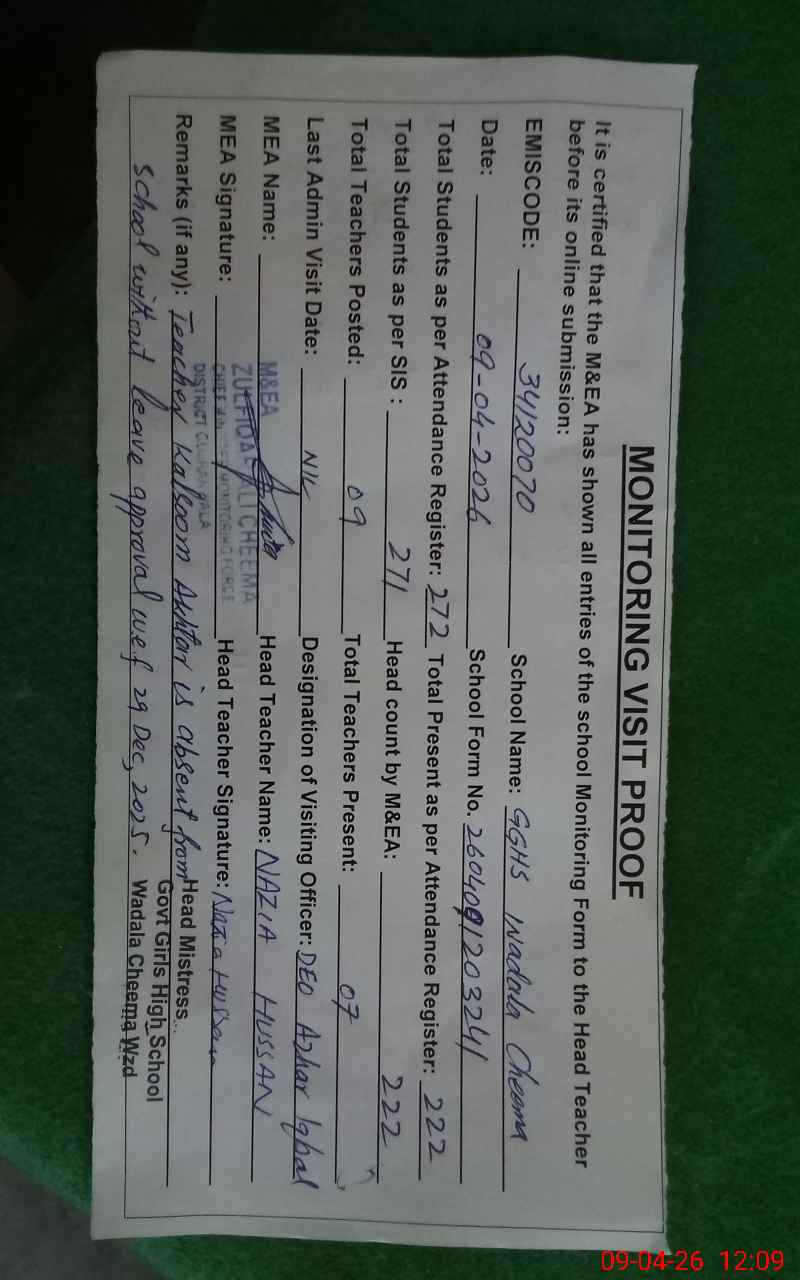 MONITORING VISIT PROOF
It is certified that the M&EA has shown all entries of the school Monitoring Form to the Head Teacher
before its online submission:
EMISCODE: 34120070 School Name: GGHS Wadala Cheema
Date: 09-04-2026 School Form No. 2604091203241
Total Students as per Attendance Register: 272 Total Present as per Attendance Register: 222
Total Students as per SIS : 271 Head count by M&EA: 222
Total Teachers Posted: 09 Total Teachers Present: 07
Last Admin Visit Date: NIL Designation of Visiting Officer: DEO Azhar Iqbal
MEA Name: Head Teacher Name: NAZIA HUSSAN
M&EA
ZULFIQAR ALI CHEEMA
MONITORING FORCE
DISTRICT GUJRANWALA
MEA Signature: Head Teacher Signature: Nazia Hussan
Remarks (if any): Teacher Kalsoom Akhtar is absent from
school without leave approval wef 29 Dec, 2025.
Head Mistress
Govt Girls High School
Wadala Cheema Wzd
09-04-26 12:09